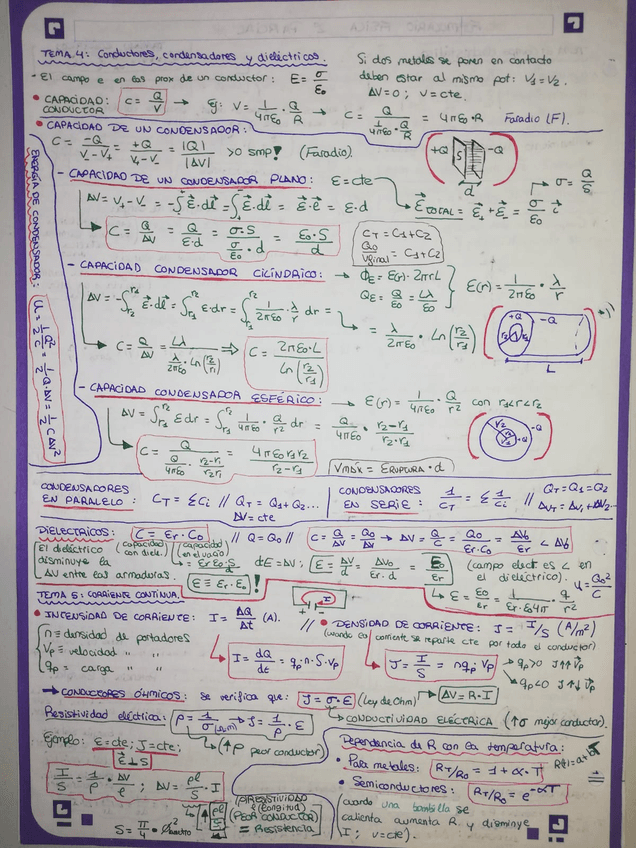 TEMA 4: Conductores, condensadores y dieléctricos.
- El campo e en las prox de un conductor: E = σ/ε₀
Si dos metales se ponen en contacto
deben estar al mismo pot: V₁=V₂.
ΔV=0; V=cte.
• CAPACIDAD: CONDUCTOR C = Q/V → ej: V = 1/4πε₀ · Q/R → C = Q/(1/4πε₀ · Q/R) = 4πε₀·R Faradio (F).
• CAPACIDAD DE UN CONDENSADOR:
C = -Q/(V₋-V₊) = +Q/(V₊-V₋) = |Q|/|ΔV| >0 smp! (Faradio).
+Q S -Q
d
- CAPACIDAD DE UN CONDENSADOR PLANO: E=cte
σ = Q/S
ΔV = V₊-V₋ = -∫E·dl = -∫E·dl = E·l = E·d
E TOTAL = E₊+E₋ = σ/ε₀ i
C = Q/ΔV = Q/(E·d) = σ·S/(σ/ε₀ · d) = ε₀·S/d
C_T = C₁+C₂
Q₀
Vfinal = C₁+C₂
- CAPACIDAD CONDENSADOR CILÍNDRICO: → Φ_E = E(r)·2πrL
Q_E = Q/ε₀ = Lλ/ε₀
E(r) = 1/2πε₀ · λ/r
ΔV = -∫E·dl = ∫E·dr = ∫ 1/2πε₀ · λ/r dr =
= λ/2πε₀ · Ln(r₂/r₁)
+Q -Q
L
C = Q/ΔV = Lλ/(λ/2πε₀ · Ln(r₂/r₁)) ⇒ C = 2πε₀·L/Ln(r₂/r₁)
- CAPACIDAD CONDENSADOR ESFÉRICO: → E(r) = 1/4πε₀ · Q/r² con r₁<r<r₂
ΔV = ∫E·dr = ∫ 1/4πε₀ · Q/r² dr = Q/4πε₀ · (r₂-r₁)/(r₂·r₁)
C = Q/(Q/4πε₀ · (r₂-r₁)/(r₂r₁)) = 4πε₀r₁r₂/(r₂-r₁)
Vmáx = E RUPTURA · d
ENERGÍA DE CONDENSADOR: U = 1/2 Q²/C = 1/2 · Q·ΔV = 1/2 C ΔV²
CONDENSADORES EN PARALELO: C_T = ΣCi // Q_T = Q₁+Q₂...
ΔV=cte
CONDENSADORES EN SERIE: 1/C_T = Σ 1/Ci // Q_T=Q₁=Q₂
ΔV_T = ΔV₁+ΔV₂...
DIELÉCTRICOS: C = εr·C₀ // Q=Q₀ // C = Q/ΔV = Q₀/ΔV → ΔV = Q/C = Q₀/(εr·C₀) = ΔV₀/εr < ΔV₀
El dieléctrico
disminuye la
ΔV entre las armaduras.
(capacidad con diel.) (capacidad en el vacío)
= εr·ε₀·S/d
ε = εr·ε₀ !
dE=ΔV; E = ΔV/d = ΔV₀/(εr·d) = E₀/εr
(campo elect es < en
el dieléctrico).
TEMA 5: CORRIENTE CONTINUA.
• INTENSIDAD DE CORRIENTE: I = ΔQ/Δt (A).
// • DENSIDAD DE CORRIENTE: J = I/S (A/m²)
(cuando la corriente se reparte cte por todo el conductor)
n = densidad de portadores
Vp = velocidad " "
qp = carga " "
I = dQ/dt = qp·n·S·Vp
J = I/S = nqp Vp
qp>0 J↑↑Vp
qp<0 J↑↓Vp
→ CONDUCTORES ÓHMICOS: se verifica que: J = σ·E (Ley de Ohm) → ΔV = R·I
→ CONDUCTIVIDAD ELÉCTRICA (↑σ mejor conductor).
Resistividad eléctrica: ρ = 1/σ (Ω·m) → J = 1/ρ · E
(↑ρ peor conductor)
Ejemplo: E=cte; J=cte;
E⊥S
I/S = 1/ρ · ΔV/l; ΔV = ρl/S · I
S = π/4 · Ø²
ρl/S
RESISTIVIDAD
(longitud)
(PEOR CONDUCTOR)
= Resistencia
Dependencia de R con la temperatura:
• Para metales: R_T/R₀ = 1+α·T
• Semiconductores: R_T/R₀ = e^-αT
cuando una bombilla se
calienta aumenta R. y disminuye
I; v=cte).